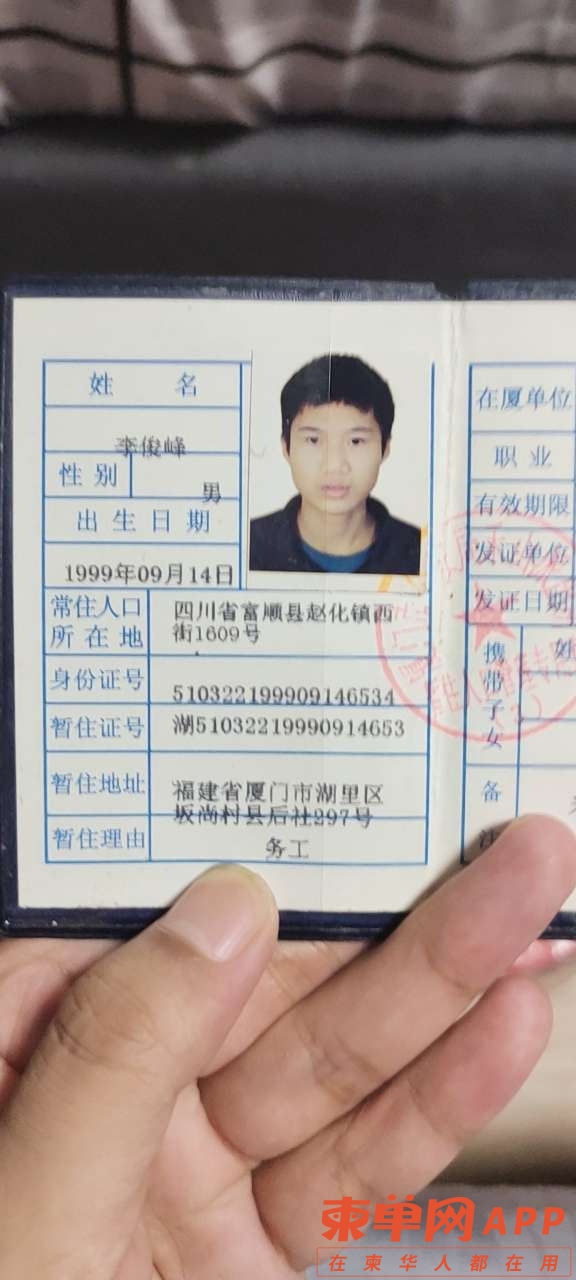 姓 名
李俊峰
性别 男
出生日期
1999年09月14日
常住人口所在地 四川省富顺县赵化镇西
街1609号
身份证号 510322199909146534
暂住证号 湖51032219990914653
暂住地址 福建省厦门市湖里区
坂尚村县后社297号
暂住理由 务工
在厦单位
职业
有效期限
发证单位
发证日期
携带子女 姓
备
柬单网APP
在柬华人都在用